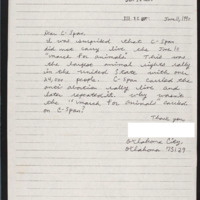 June 11, 1990
Dear C-Span
I was surprised that C-Span
did not carry live the June 10
"march for animals". This was
the largest animal rights rally
in the united State with over
24,000 people. C-Span carried the
anti abortion rally live and
later repeated it. Why wasn't
the "march for animals" carried
on C-Span?
Thank you,
Oklahoma City,
Oklahoma 73129